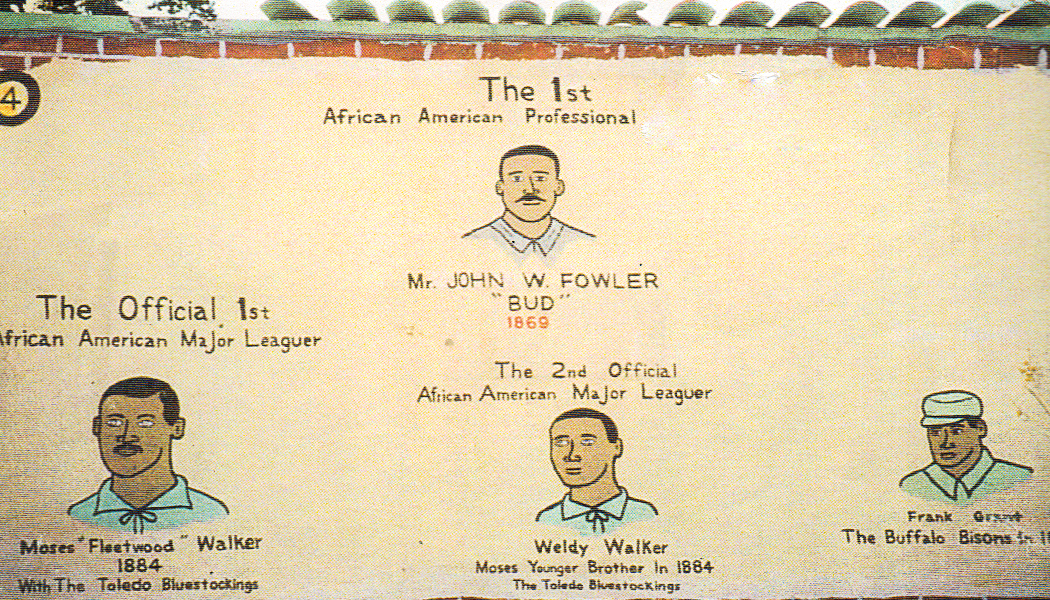 4
The 1st
African American Professional
Mr. JOHN W. FOWLER
"BUD"
1869
The Official 1st
African American Major Leaguer
Moses "Fleetwood" Walker
1884
With The Toledo Bluestockings
The 2nd Official
African American Major Leaguer
Weldy Walker
Moses Younger Brother In 1884
The Toledo Bluestockings
Frank Grant
The Buffalo Bisons In